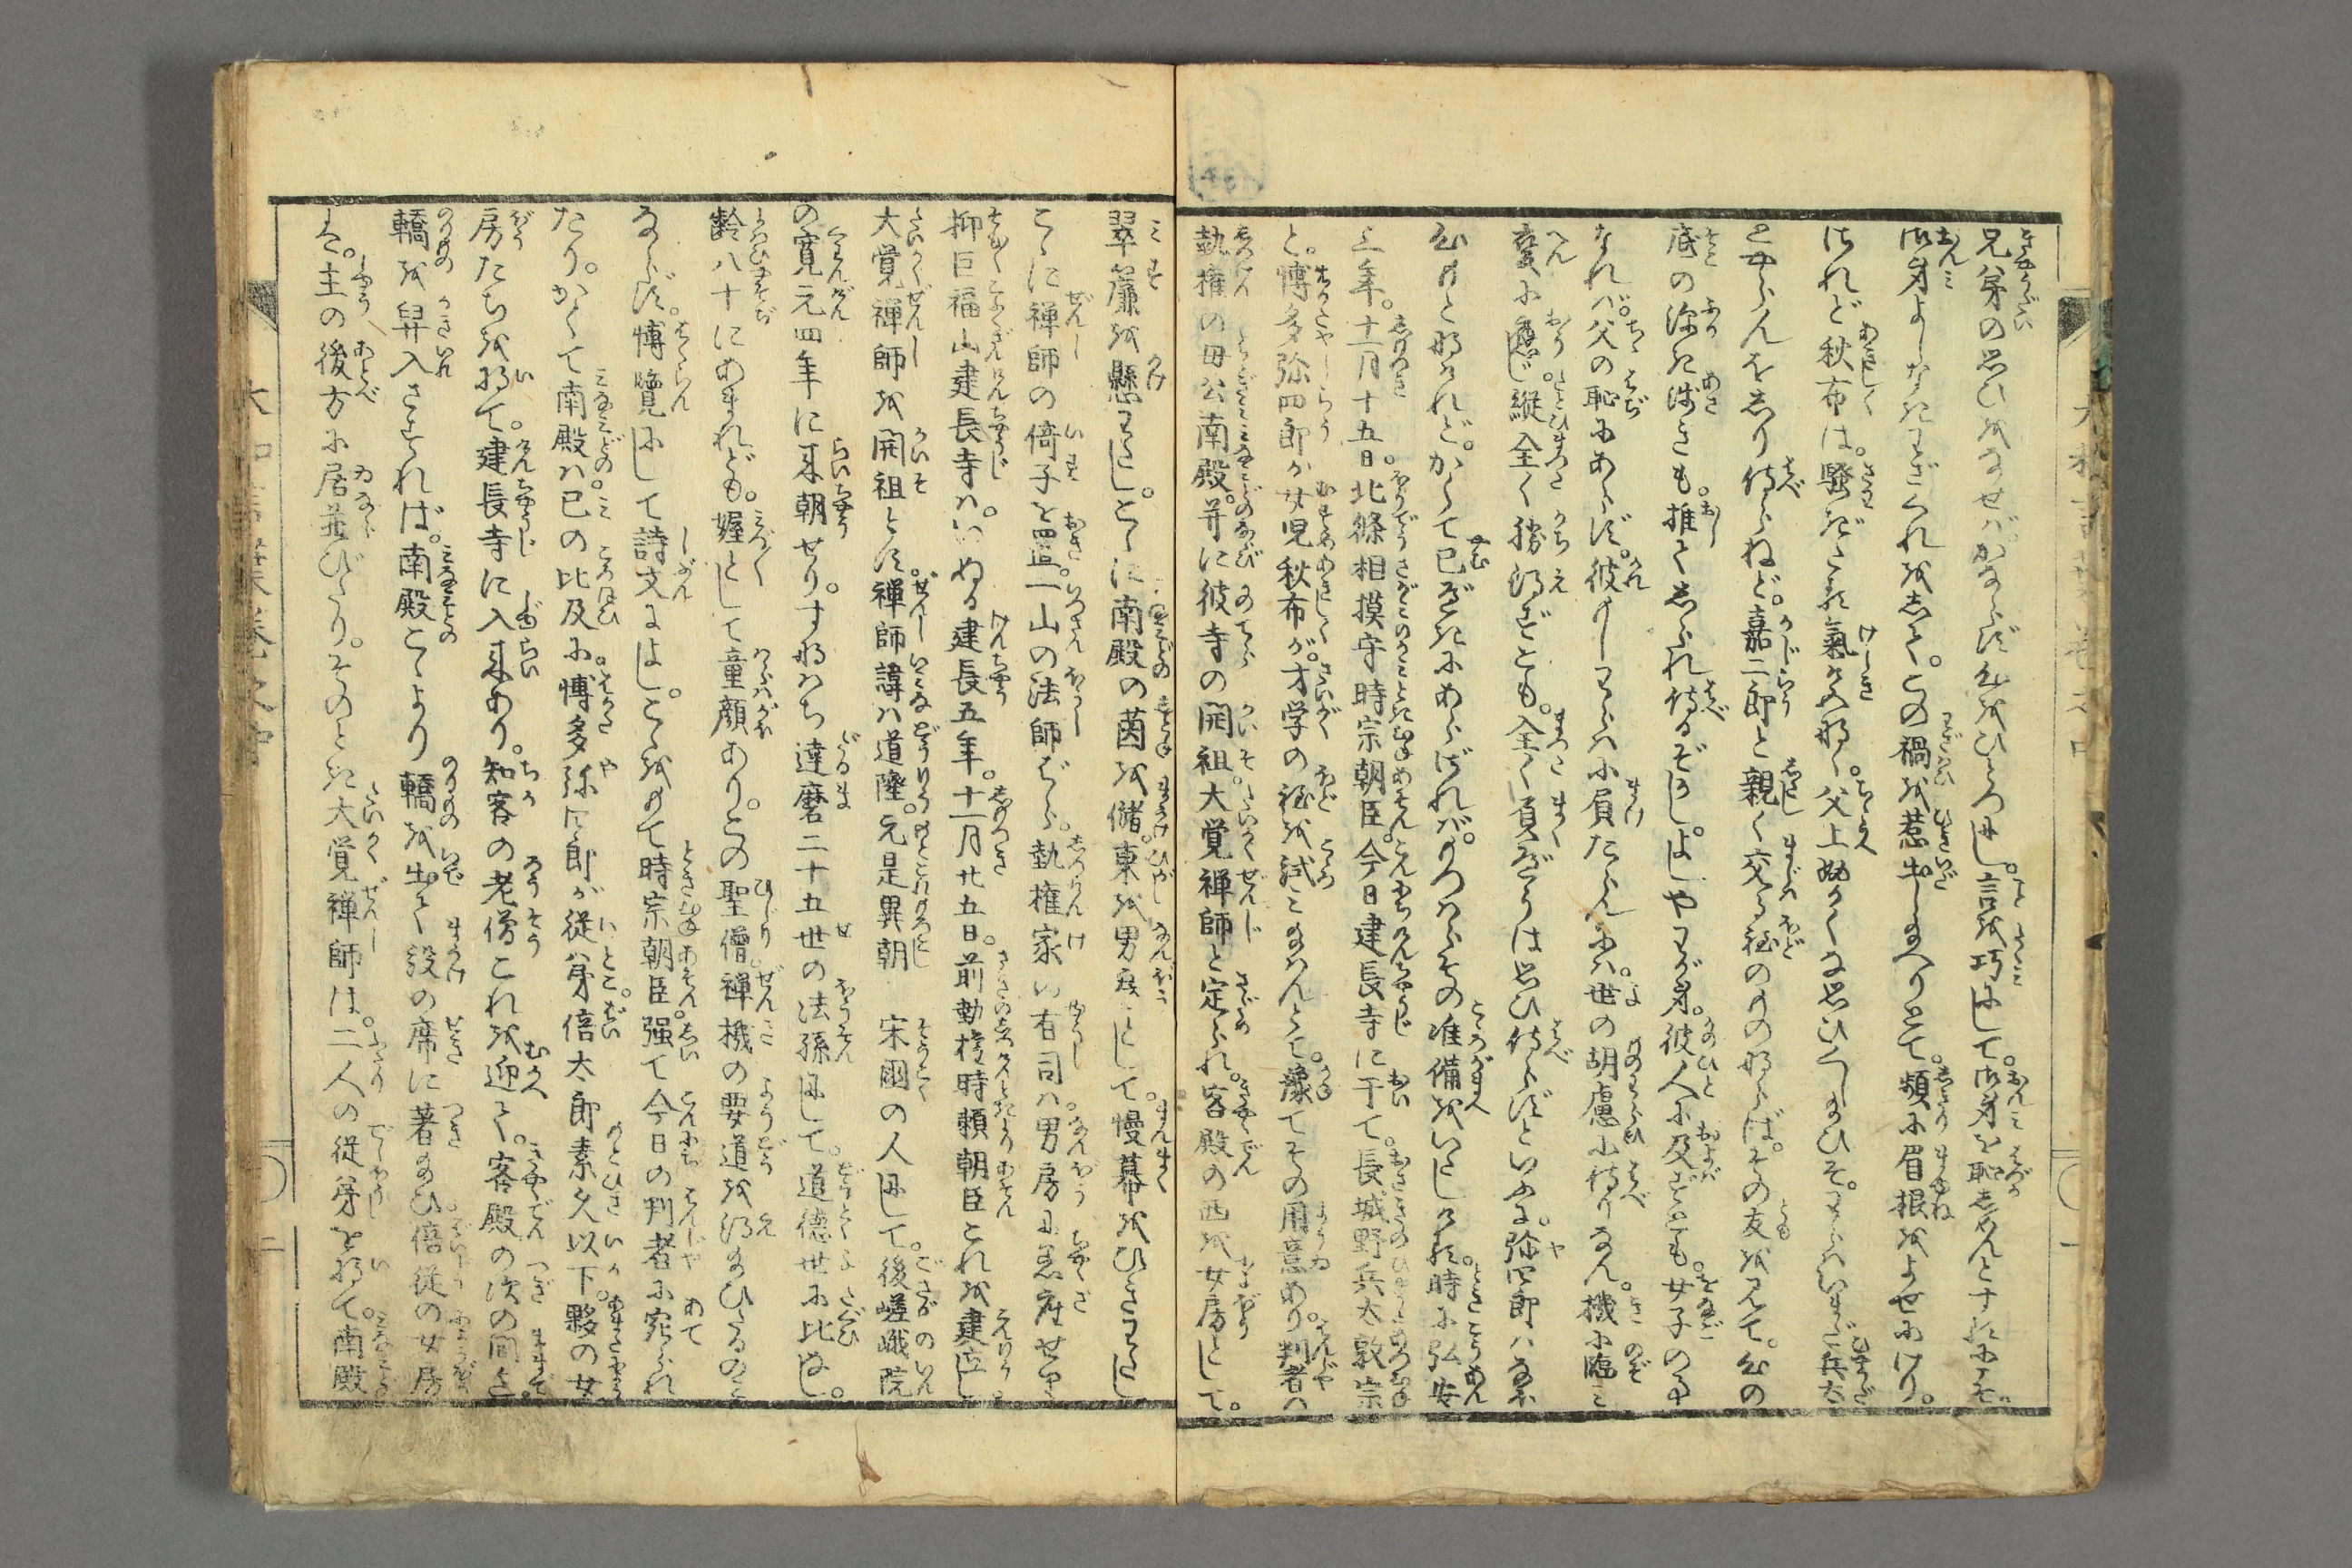 兄弟の思ひをなせばかならず心をひろにし。言を巧にして。御身を恥しめんとするにこそ。
御身よしなきわざくれをして。この禍を惹出し給へりとて。頻に眉根をよせにけり。
されど秋布は。騒ぎたる氣色なく。父上ぬかくな思ひくし給ひそ。わらはいまだ兵太
とやらんをしり侍らねど。嘉二郎と親く交る程のものならば。その友を見て。心の
底の深き淺きも。推てしられ侍るぞかし。よしやわが身。彼人に及ばずとも。女子の事
なれば。父の恥にあらず。彼もしわらはに負たらんには。世の胡慮に侍りなん。機に臨み
變に應じ。縱全く勝得ずとも。全く負ざらんは思ひ侍らずといふに。弥四郎はなほ
心もと なけれど。かくて已べきにあらざれば。もつはらその准備をいたしける。時に弘安
三年。十一月十五日。北條相摸守時宗朝臣。今日建長寺に于て。長城野兵太敦宗
と。博多弥四郎が女児秋布が。才学の程を試み給はんとて。豫てその用意あり。判者は
執権の母公南殿。并に彼寺の開祖。大覚禅師と定られ。客殿の西を女房として。
翠簾を懸わたし。こゝに南殿の茵を儲。東を男房として。幔幕をひきわたし
こゝに禅師の倚子を置。一山の法師ばら。執権家の有司は。男房に着座せり
抑巨福山建長寺は。いぬる建長五年。十一月廿五日。前執権時頼朝臣これを建立し
大覚禅師を開祖とす。禅師諱は道隆。元是異朝 宋國の人にして。後嵯峨院
の寛元四年に来朝せり。すなはち達磨二十五世の法孫にして。道徳世に比なし。
齢八十にあまれども。媉として童顔あり。この聖僧。禅機の要道を得給ひたるのみ
ならず。博覧にして詩文によし。こゝをもて時宗朝臣。强て今日の判者に宛られ
たり。かくて南殿は巳の比及に。博多弥四郎が従弟。倍太郎素久以下。夥の女
房たちを将て。建長寺に入来あり。知客の老僧これを迎て。客殿の次の間まで。
轎を舁入させければ。南殿こゝより轎を出て。設の席に著給ひ。倍従の女房
は。主の後方に居並びたり。そのとき大覚禅師は。二人の従弟を将て。南殿